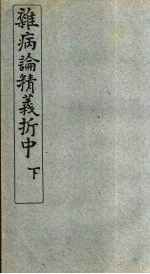 雜病論精義折中下